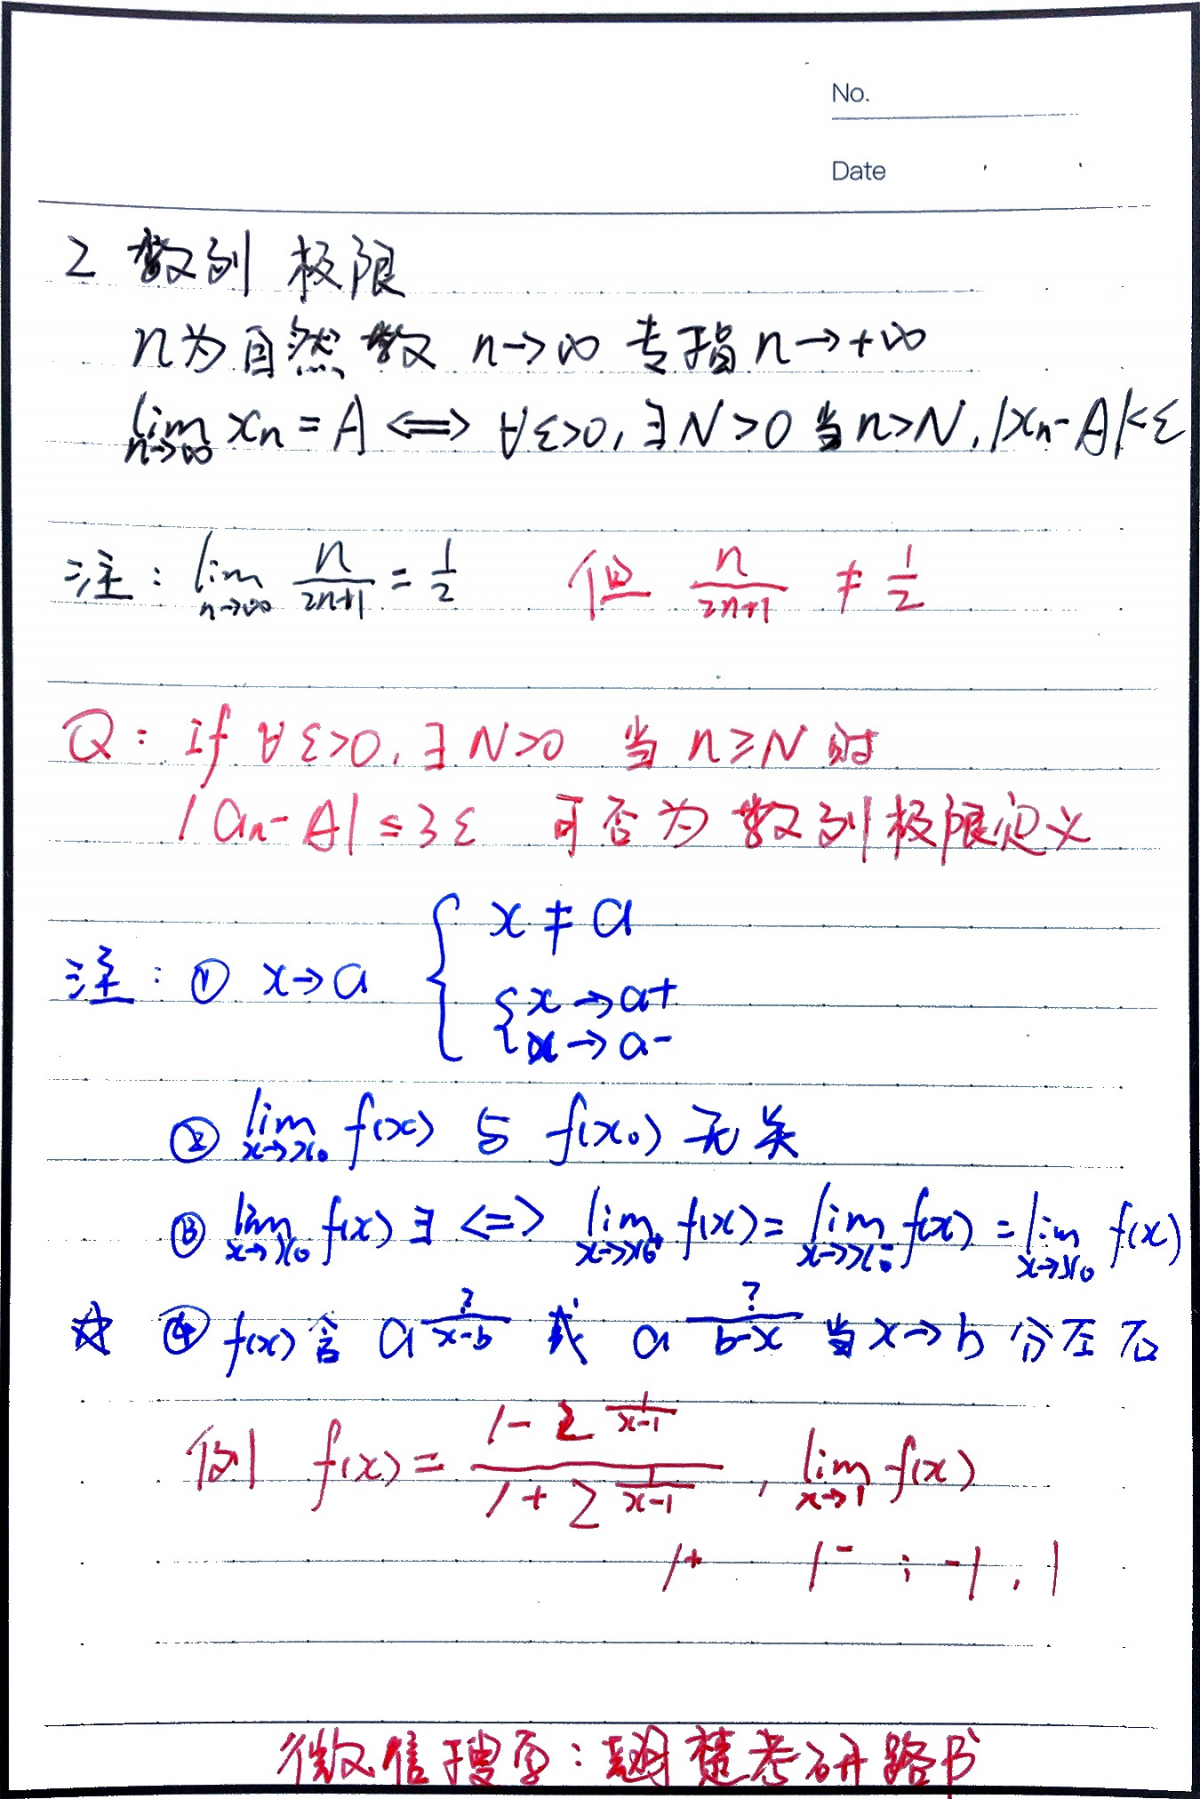 No.
Date
2 数列 极限
n为自然数 n→∞ 专指n→+∞
lim_{n→∞} xn = A ⟺ ∀ε>0, ∃N>0 当n>N, |xn-A|<ε
注: lim_{n→∞} n/(2n+1) = 1/2 但 n/(2n+1) ≠ 1/2
Q: if ∀ε>0, ∃N>0 当 n≥N 时
|an-A|≤3ε 可否为 数列极限定义
注: ① x→a { x≠a
{ x→a+
x→a-
② lim_{x→x0} f(x) 与 f(x0) 无关
③ lim_{x→x0} f(x) ∃ <=> lim_{x→x0+} f(x) = lim_{x→x0-} f(x) = lim_{x→x0} f(x)
☆ ④ f(x)含 a^{?/(x-b)} 或 a^{?/(b-x)} 当x→b 分左右
例 f(x) = (1-2^{1/(x-1)})/(1+2^{1/(x-1)}), lim_{x→1} f(x)
1+ 1- : -1, 1
微信搜索: 考研路书